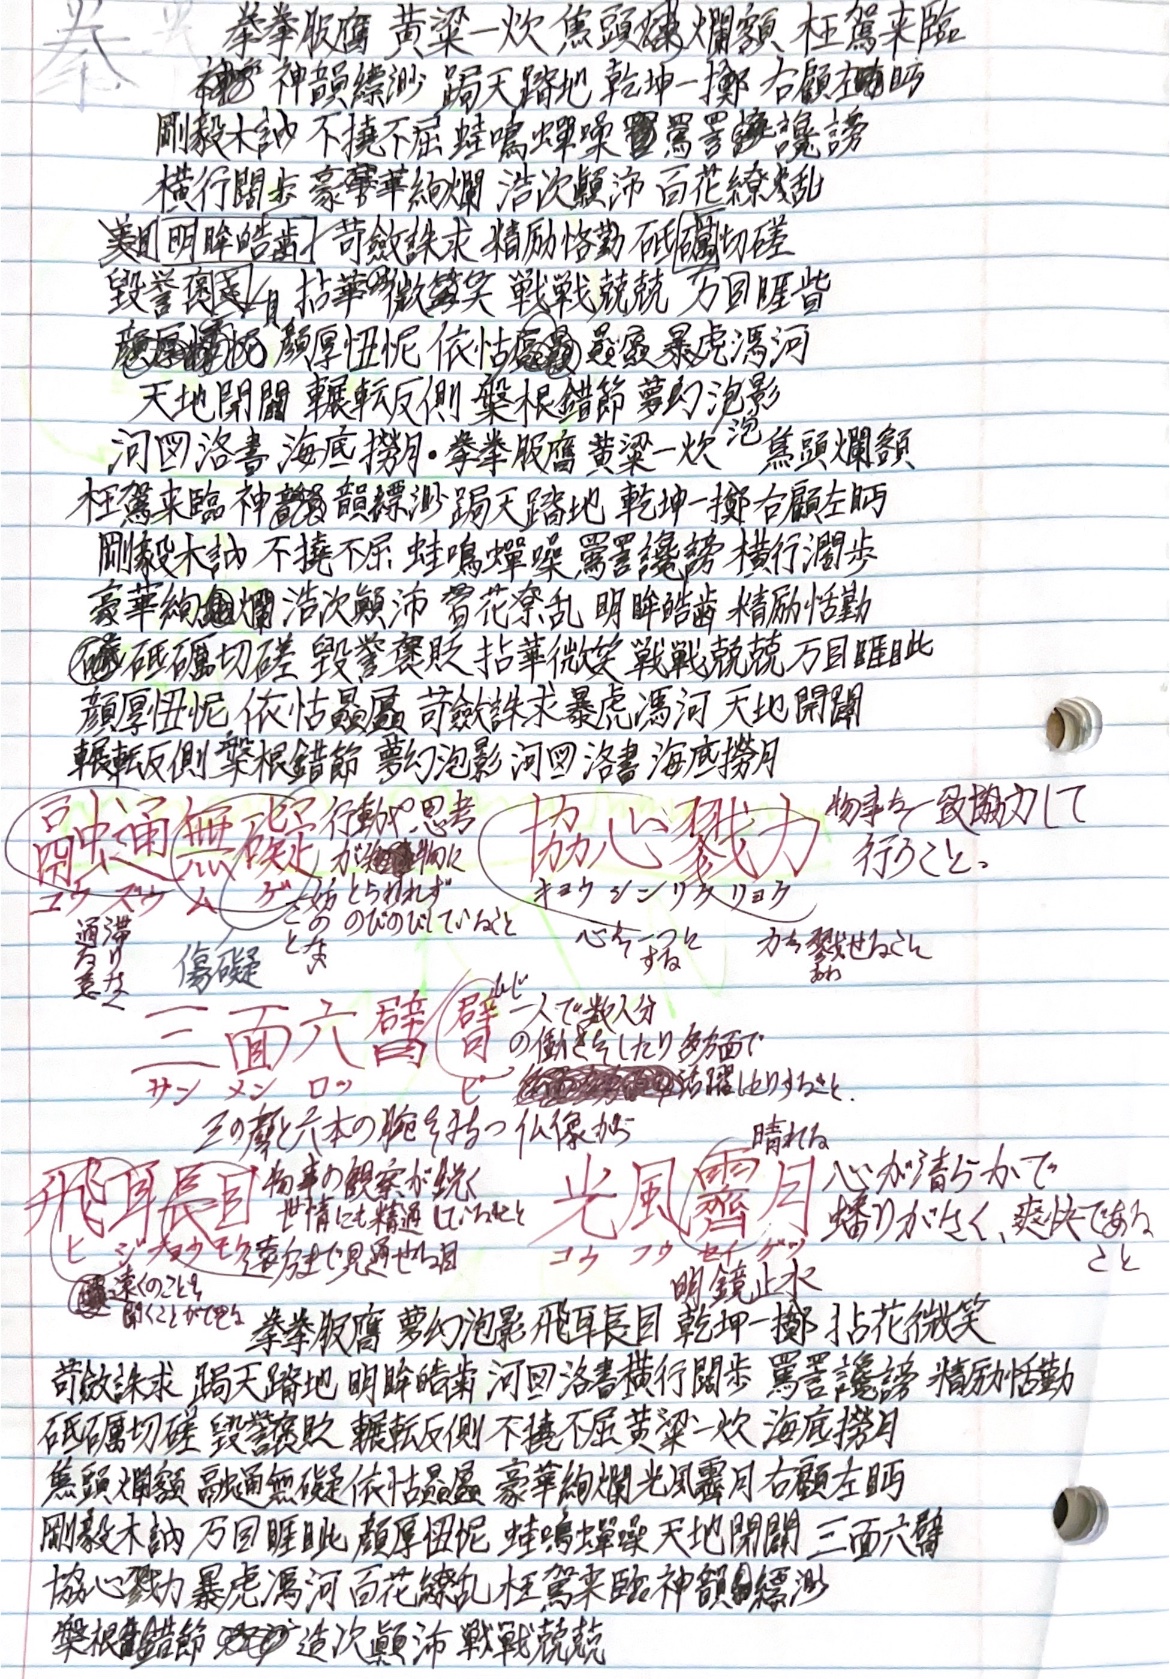 拳拳服膺 黄粱一炊 焦頭爛額 枉駕来臨
神韻縹渺 跼天蹐地 乾坤一擲 右顧左眄
剛毅木訥 不撓不屈 蛙鳴蟬噪 罵詈讒謗
横行闊歩 豪華絢爛 浩次顛沛 百花繚乱
美目 明眸皓歯 苛斂誅求 精励恪勤 砥礪切磋
毀誉褒 拈華微笑 戦戦兢兢 万目睚眥
顔厚忸怩 依怙 贔屓 暴虎馮河
天地開闢 輾転反側 槃根錯節 夢幻泡影
泡
河図洛書 海底撈月・拳拳服膺 黄粱一炊 焦頭爛額
枉駕来臨 神韻縹渺 跼天蹐地 乾坤一擲 右顧左眄
剛毅木訥 不撓不屈 蛙鳴蟬噪 罵詈讒謗 横行濶歩
豪華絢爛 浩次顛沛 百花繚乱 明眸皓歯 精励恪勤
砥礪切磋 毀誉褒貶 拈華微笑 戦戦兢兢 万目睚眦
顔厚忸怩 依怙贔屓 苛斂誅求 暴虎馮河 天地開闢
輾転反側 槃根錯節 夢幻泡影 河図洛書 海底撈月
融通無碍
ユウ ズウ ム ゲ
行動や思考
が 物に
とらわれず
のびのびしていること
滞りなく
通る意
妨
さの
ない
こと
傷礙
協心戮力
キョウ シン リク リョク
物事を一致協力して
行うこと。
心を一つに
する
力を戮せること
あわ
三面六臂 臂
サン メン ロッ ピ
ひじ
一人で数人分
の働きをしたり多方面で
活躍したりすること.
三つの顔と六本の腕を持つ仏像から
飛耳長目
ヒ ジ チョウ モク
物事の観察が鋭く
世情にも精通していること
遠方まで見通せる目
遠くのことを
聞くことができる
晴れる
光風霽月
コウ フウ セイ ゲツ
心が清らかで
蟠りがなく、爽快である
こと
明鏡止水
拳拳服膺 夢幻泡影 飛耳長目 乾坤一擲 拈花微笑
苛斂誅求 跼天蹐地 明眸皓歯 河図洛書 横行闊歩 罵詈讒謗 精励恪勤
砥礪切磋 毀誉褒貶 輾転反側 不撓不屈 黄粱一炊 海底撈月
焦頭爛額 融通無礙 依怙贔屓 豪華絢爛 光風霽月 右顧左眄
剛毅木訥 万目睚眦 顔厚忸怩 蛙鳴蟬噪 天地開闢 三面六臂
協心戮力 暴虎馮河 百花繚乱 枉駕来臨 神韻縹渺
槃根錯節 造次顛沛 戦戦兢兢